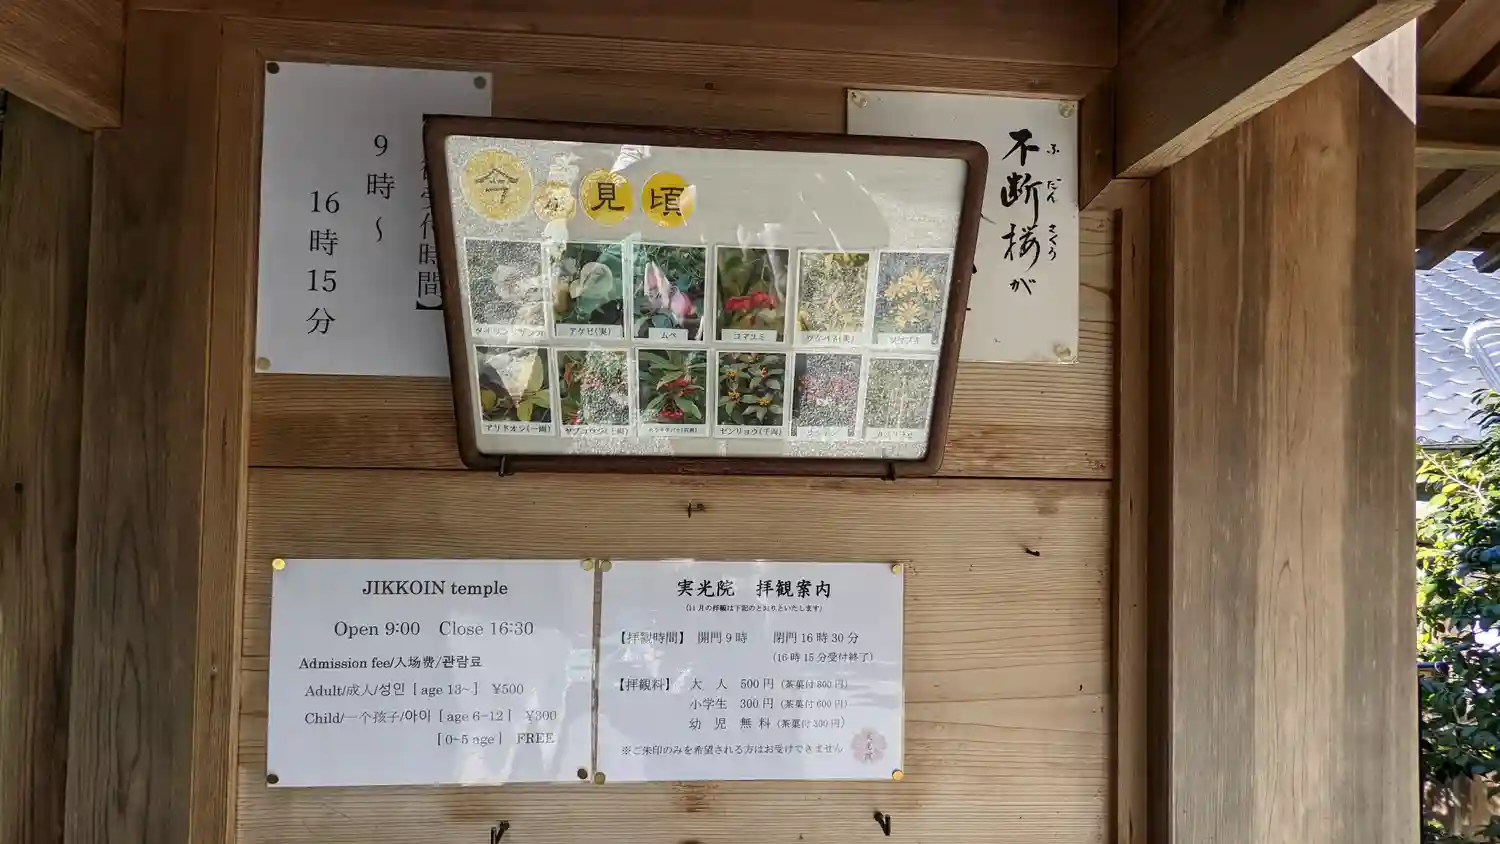 9時~
16時15分
時間】
不断桜が
ふ だん さくら
今 見 頃
アケビ(実)
ムベ
コマユミ
アリドオシ(一両)
センリョウ(千両)
JIKKOIN temple
Open 9:00 Close 16:30
Admission fee/入场费/관람료
Adult/成人/성인 [age 13~] ¥500
Child/一个孩子/아이 [age 6-12] ¥300
[0~5 age] FREE
実光院 拝観案内
(11月の拝観は下記のとおりといたします)
【拝観時間】 開門9時 閉門16時30分
(16時15分受付終了)
【拝観料】 大 人 500円(茶菓付800円)
小学生 300円(茶菓付600円)
幼 児 無 料(茶菓付300円)
※ご朱印のみを希望される方はお受けできません